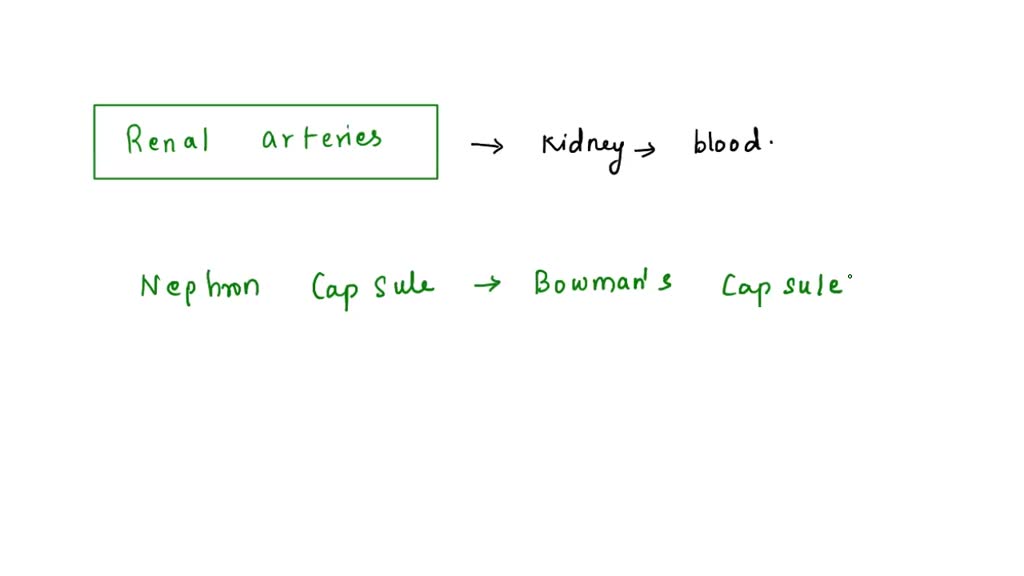 Renal arteries → Kidney → blood.
Nephron Capsule → Bowman's Capsule